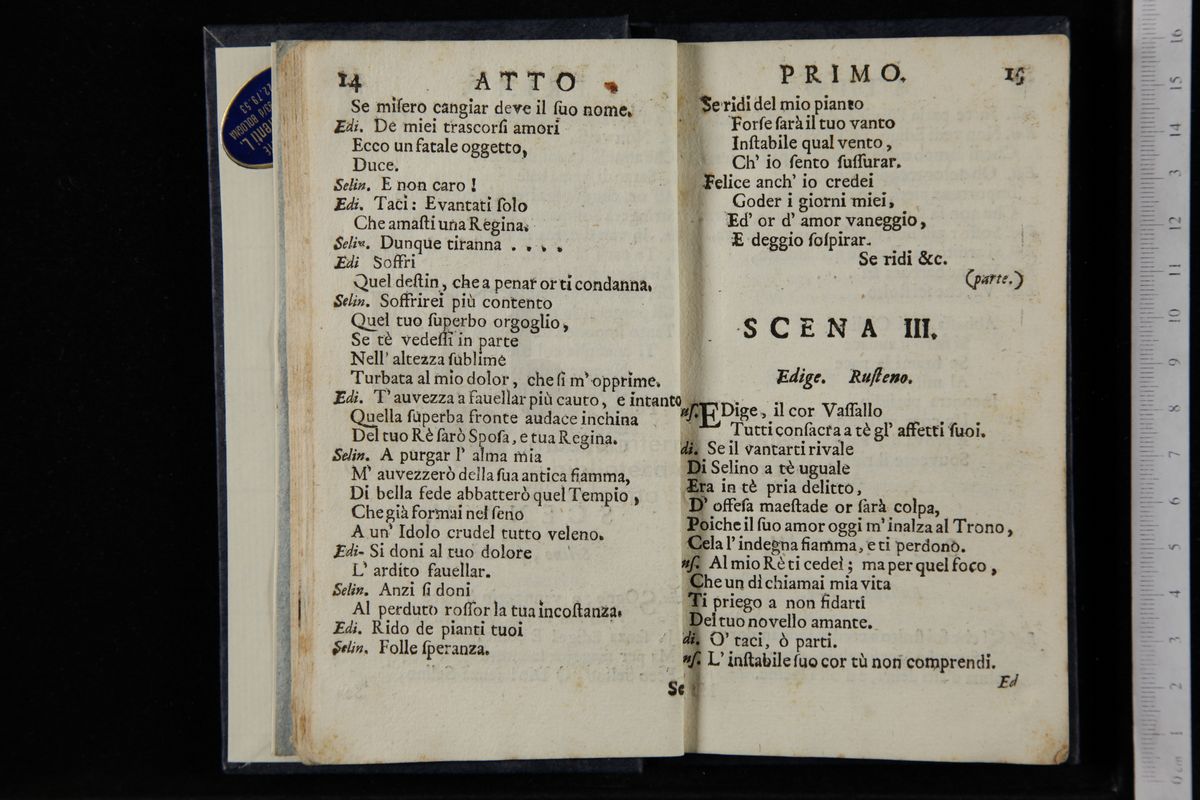 14 ATTO
Se miſero cangiar deve il ſuo nome.
Edi. De miei traſcorſi amori
Ecco un fatale oggetto,
Duce.
Selin. E non caro !
Edi. Taci: E vantati ſolo
Che amaſti una Regina.
Selin. Dunque tiranna . . . .
Edi Soffri
Quel deſtin, che a penar or ti condanna.
Selin. Soffrirei più contento
Quel tuo ſuperbo orgoglio,
Se tè vedeſſi in parte
Nell' altezza ſublime
Turbata al mio dolor, che ſi m' opprime.
Edi. T' auvezza a fauellar più cauto, e intanto
Quella ſuperba fronte audace inchina
Del tuo Rè ſarò Spoſa, e tua Regina.
Selin. A purgar l' alma mia
M' auvezzerò della ſua antica fiamma,
Di bella fede abbatterò quel Tempio,
Che già formai nel ſeno
A un' Idolo crudel tutto veleno.
Edi- Si doni al tuo dolore
L' ardito fauellar.
Selin. Anzi ſi doni
Al perduto roſſor la tua incoſtanza.
Edi. Rido de pianti tuoi
Selin. Folle ſperanza.
Se
PRIMO. 15
Se ridi del mio pianto
Forſe ſarà il tuo vanto
Inſtabile qual vento,
Ch' io ſento ſuſſurar.
Felice anch' io credei
Goder i giorni miei,
Ed' or d' amor vaneggio,
E deggio ſoſpirar.
Se ridi &c.
(parte.)
SCENA III.
Edige. Ruſteno.
uſ. EDige, il cor Vaſſallo
Tutti conſacra a tè gl' affetti ſuoi.
di. Se il vantarti rivale
Di Selino a tè uguale
Era in tè pria delitto,
D' offeſa maeſtade or ſarà colpa,
Poiche il ſuo amor oggi m' inalza al Trono,
Cela l' indegna fiamma, e ti perdono.
uſ. Al mio Rè ti cedei; ma per quel foco,
Che un dì chiamai mia vita
Ti priego a non fidarti
Del tuo novello amante.
di. O' taci, ò parti.
uſ. L' inſtabile ſuo cor tù non comprendi.
Ed
BOLOGNA